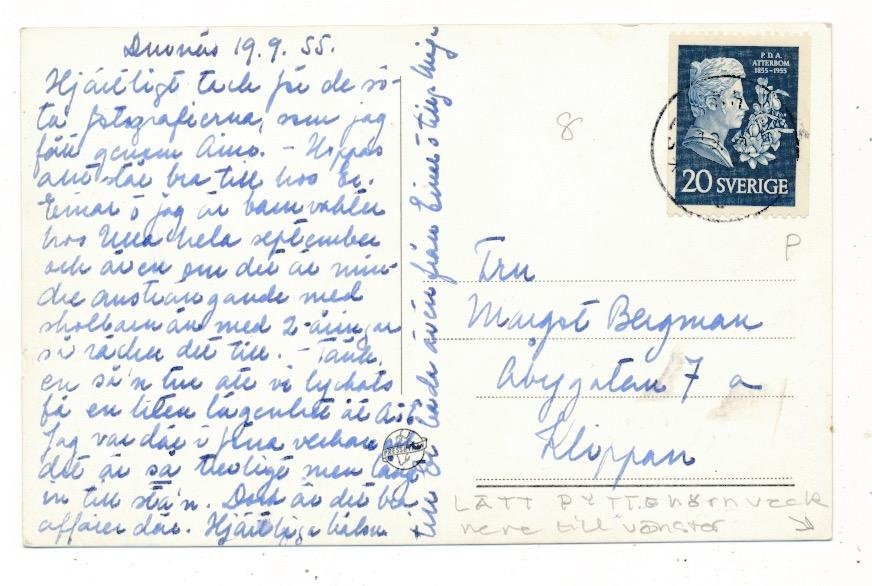 19.9.55.
Hjärtligt tack för de sö-
ta fotografierna, som jag
fått genom Aino. - Hoppas
allt står bra till hos Er.
Einar o jag är barnvakter
hos Ulla hela september
och även om det är min-
dre ansträngande med
skolbarn än med 2-åringar
så räcker det till. - Tänk,
en så'n tur att vi lyckats
få en liten lägenhet åt
Jag var där i förra veckan
det är så trevligt men långt
in till sta'n. Dock är det bra
affärer där. Hjärtliga hälsn.
till Er båda även från Einar o
P.D.A.
ATTERBOM
1855-1955
20 SVERIGE
8
P
Fru
Margot Bergman
Åbygatan 7 a
Klippan
LÄTT PYTTE hörnveck
nere till vänster